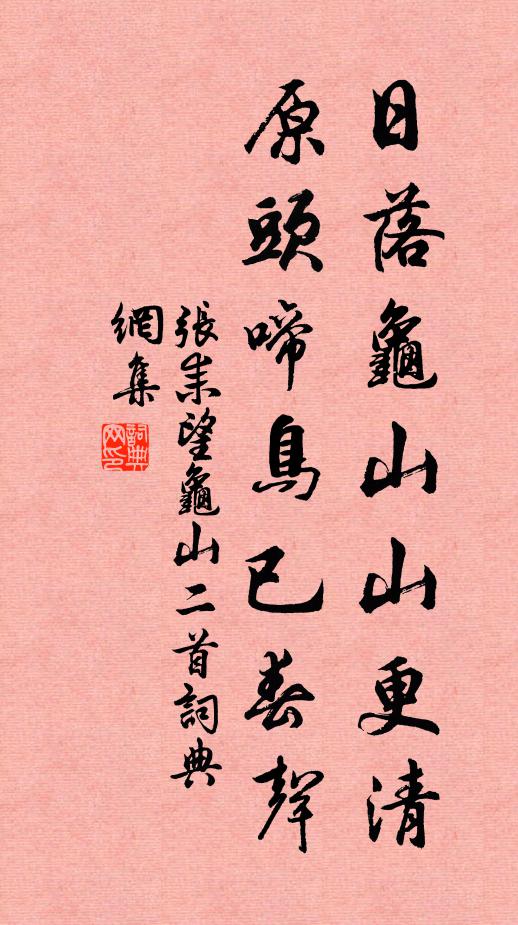 日落龜山山更清
原頭啼鳥已春聲
張耒望龜山二首詞典
網集
詞典
网印